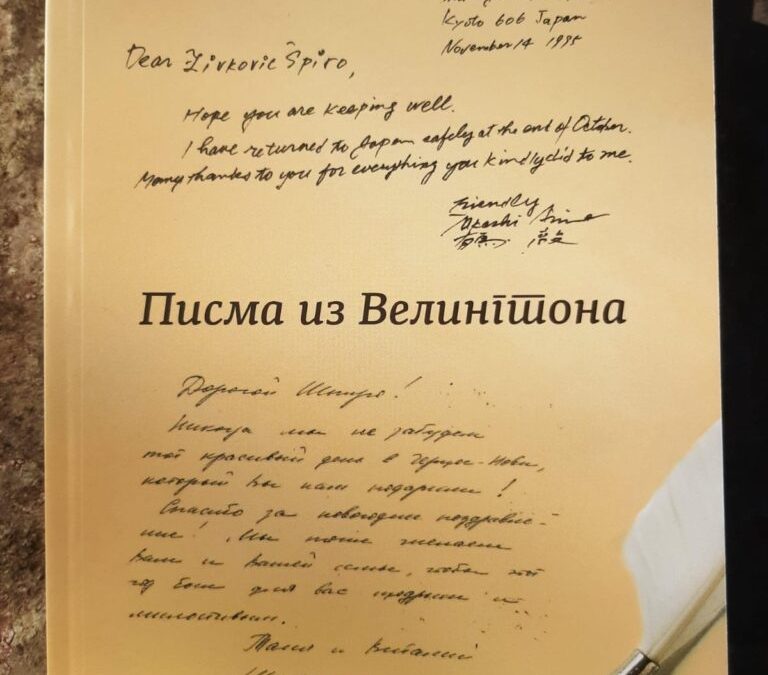 Kyoto 606 Japan
November 14 1995
Dear Živković Špiro,
Hope you are keeping well.
I have returned to Japan safely at the end of October.
Many thanks to you for everything you kindly did to me.
Friendly
Takashi Arima
有馬 敲
Писма из Велингтона
Дорогой Шпиро!
Никогда мы не забудем
тот красивый день в Герцег-Нови,
который Вы нам подарили!
Спасибо за новогоднее поздравле-
ние! Мы тоже желаем
Вам и Вашей семье, чтобы этот
год был для вас щедрым и
милостивым.
Таня и Виталий